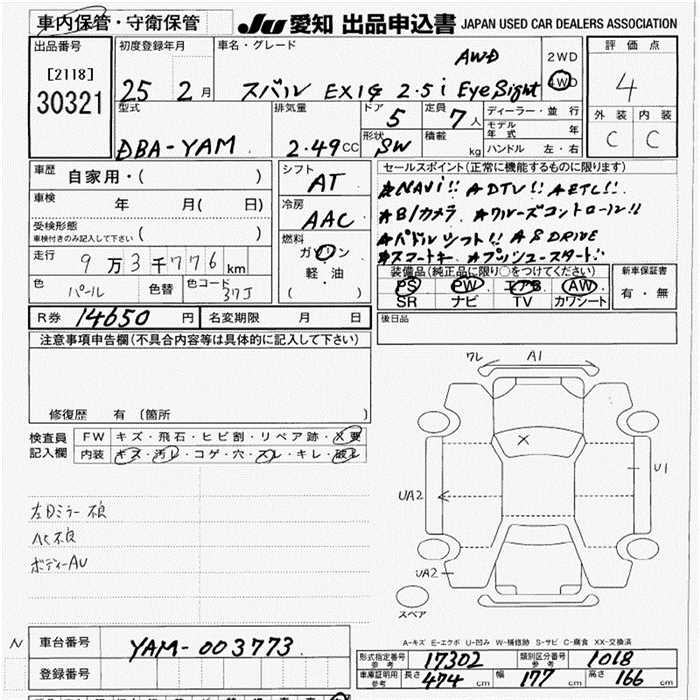 車内保管・守衛保管 JU 愛知 出品申込書 JAPAN USED CAR DEALERS ASSOCIATION
出品番号 初度登録年月 車名・グレード 評価点
[2118] AWD 2WD
30321 25 2月 スバル EXIG 2.5i EyeSight 4WD 4
型式 排気量 ドア 定員 ディーラー・並行 外装 内装
5 7人 モデル年式 年
DBA-YAM 2.49cc 形状 SW 積載 kg ハンドル 左・右 C C
車歴 自家用・( ) シフト AT セールスポイント(正常に機能するものに限ります)
車検 年 月( 日) 冷房 AAC ★NAVi!! ★DTV!! ★ETC!!
受検形態 ★B/カメラ ★クルーズコントロール!!
車検付きのみ記入して下さい ( ) 燃料 ★パドルシフト!! ★S DRIVE
走行 9万3千776km ガソリン ★スマートキー ★プッシュスタート!!
色 パール 色替 色コード 37J 軽・油 ( )
装備品(純正品に限り○をつけてください) 新車保証書
PS PW エアB AW 有・無
SR ナビ TV カワシート
R券 14650円 名変期限 月 日 後日品
注意事項申告欄(不具合内容等は具体的に記入して下さい)
修復歴 有(箇所 )
ワレ A1
検査員 FW キズ・飛石・ヒビ割・リペア跡・X要
記入欄 内装 キズ・汚レ・コゲ・穴・スレ・キレ・破レ
X
U1
UA2
左Dミラー不良
不良
ボディーAU
UA2
スペア
A-キズ E-エクボ U-凹み W-補修跡 S-サビ C-腐食 XX-交換済
N 車台番号 YAM-003773
形式指定番号 参考 17302 類別区分番号 参考 1018
登録番号 車庫証明用 参考 長さ 474cm 幅 177cm 高さ 166cm